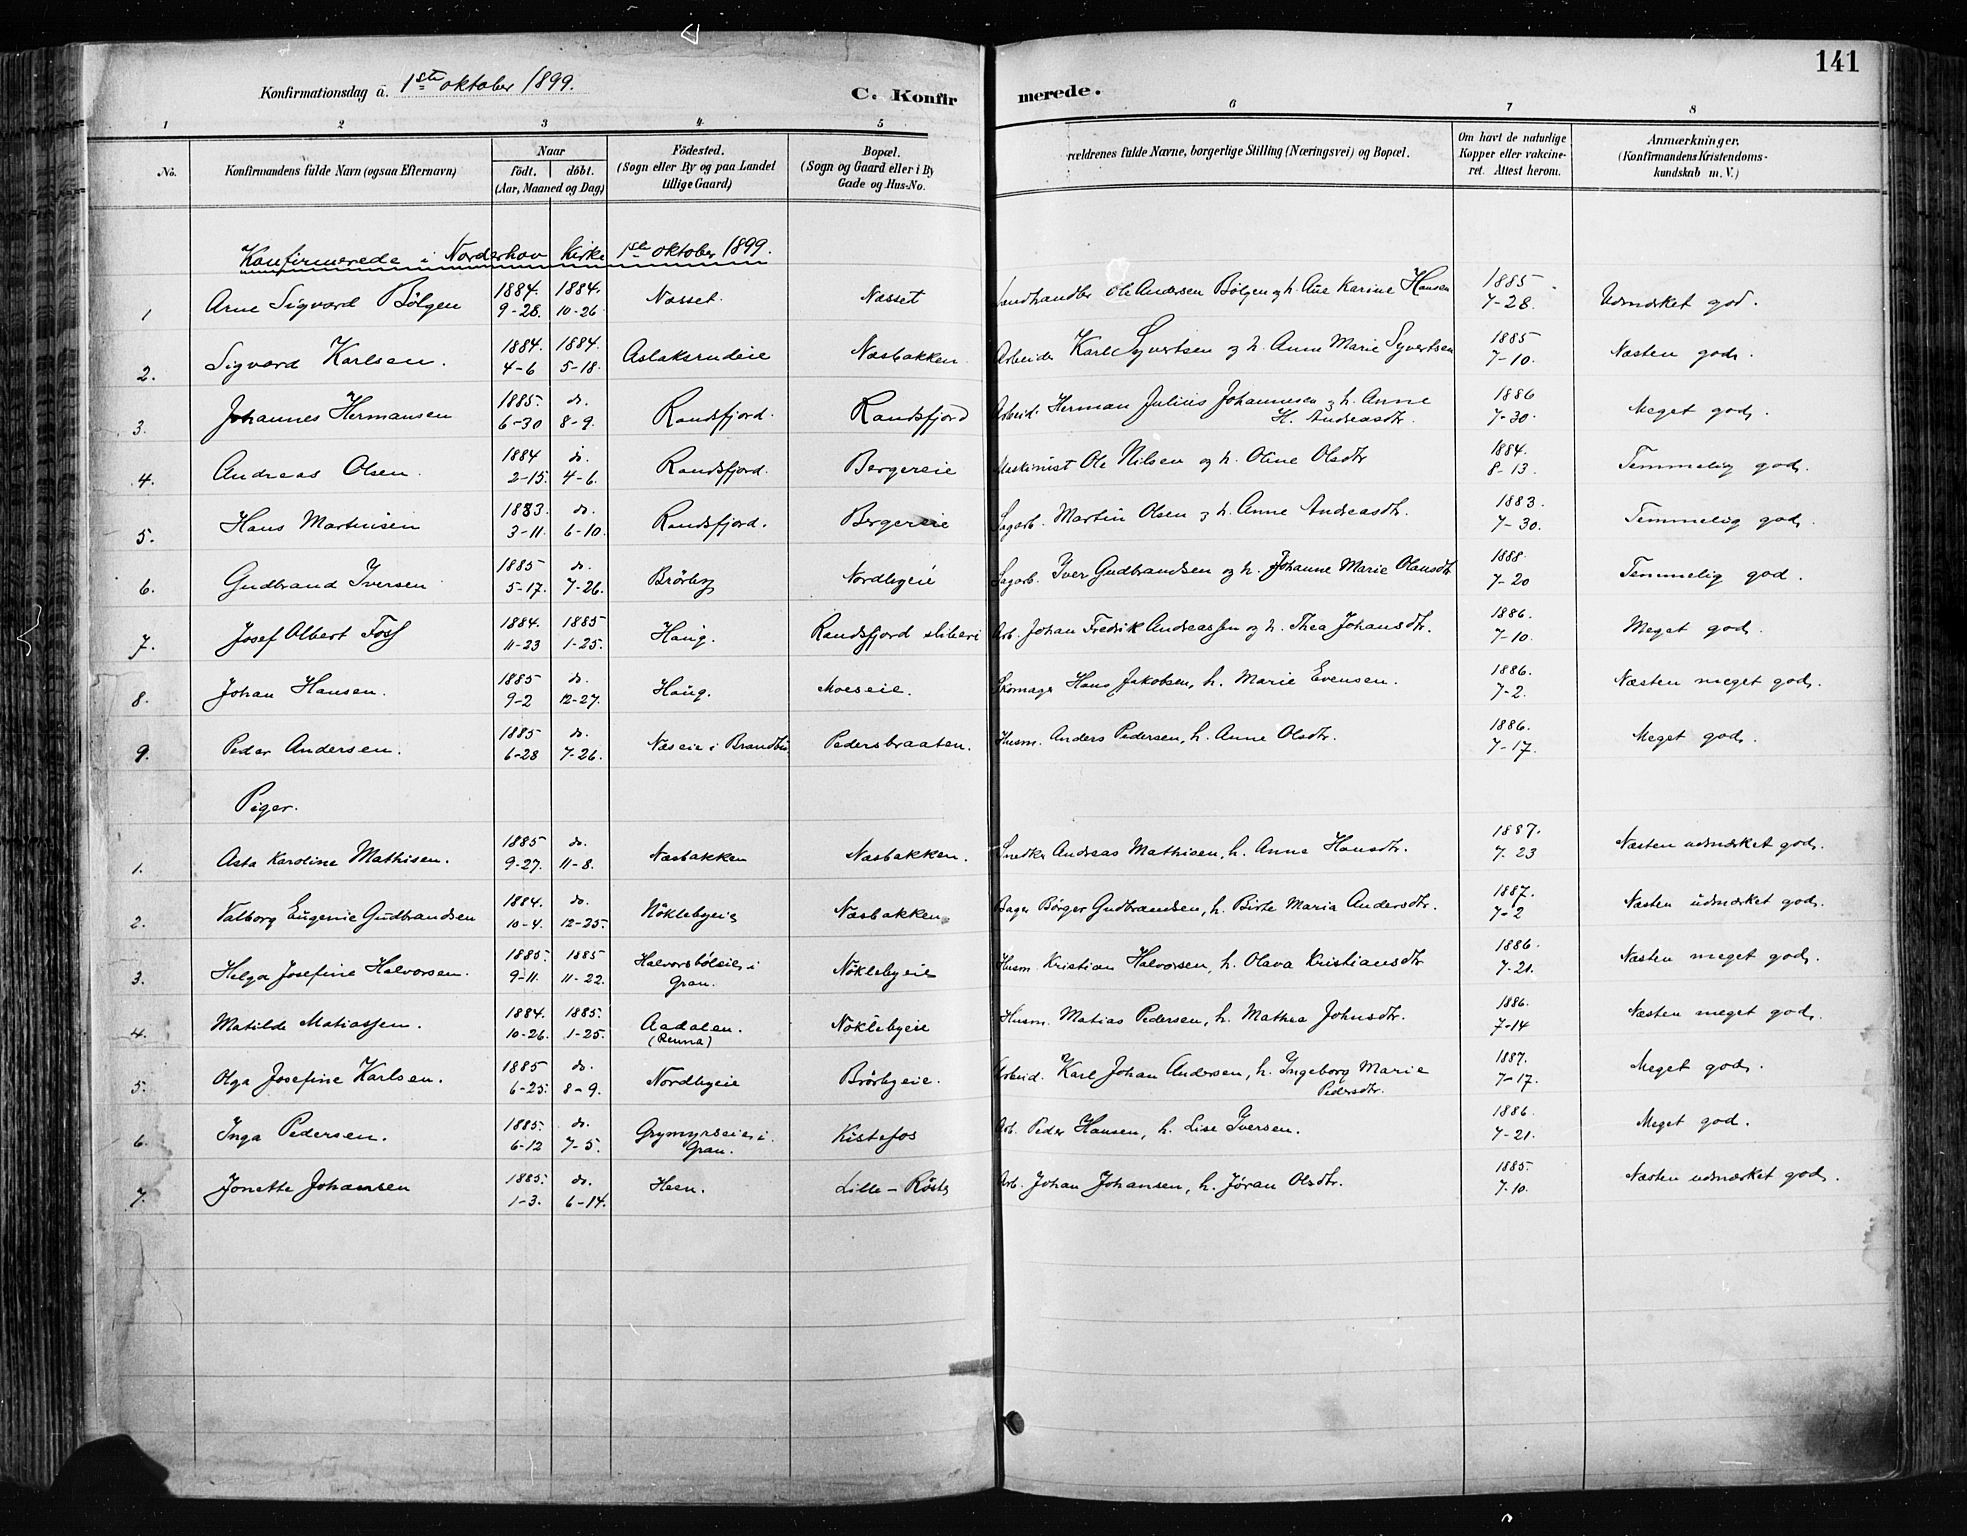 141
Konfirmationsdag d. 1ste oktober 1899.
C. Konfir merede.
1 2 3 4 5 6 7 8
No. Konfirmandens fulde Navn (ogsaa Efternavn) Naar født. døbt. (Aar, Maaned og Dag) Fødested. (Sogn eller By og paa Landet tillige Gaard) Bopæl. (Sogn og Gaard eller i By Gade og Hus-No. rældrenes fulde Navne, borgerlige Stilling (Næringsvei) og Bopæl. Om havt de naturlige Kopper eller vakcineret. Attest herom. Anmærkninger. (Konfirmandens Kristendomskundskab m. V.)
Konfirmerede i Norderhov Kirke 1ste oktober 1899.
1 Arne Sigvard Bølgen 1884. 9-28. 1884. 10-26 Næsset. Næsset Landhandler Ole Andersen Bølgen og h. Ane Karine Hansen 1885 7-28. Udmærket god.
2. Sigvard Karlsen. 1884. 4-6 1884. 5-18. Aslaksrudeie Næsbakken. Arbeider Karl Syvertsen og h. Anne Marie Syvertsen 1885 7-10. Næsten god.
3. Johannes Hermansen 1885. 6-30 do. 8-9. Randsfjord. Randsfjord Arbeid. Herman Julius Johannesen og h. Anne H. Andreasdtr. 1886 7-30. Meget god.
4. Andreas Olsen. 1884 2-15. do. 4-6. Randsfjord. Bergereie Maskinist Ole Nilsen og h. Oline Olsdtr 1884. 8-13. Temmelig god.
5. Hans Martinsen 1883. 3-11. do. 6-10. Randsfjord. Bergereie Sagarb. Martin Olsen og h. Anne Andreasdtr. 1883. 7-30. Temmelig god.
6. Gudbrand Iversen 1885 5-17. do. 7-26. Brørby Nordbyeie Sagarb. Iver Gudbrandsen og h. Johanne Marie Olausdtr 1888 7-20 Temmelig god.
7. Josef Albert Foss 1884. 11-23 1885 1-25. Haug. Randsfjord sliberi Arb. Johan Fredrik Andreassen og h. Thea Johansdtr. 1886. 7-10. Meget god.
8. Johan Hansen. 1885 9-2 do. 12-27. Haug. Moeseie. Skomager Hans Jakobsen, h. Marie Evensen. 1886. 7-2. Næsten meget god.
9. Peder Andersen. 1885 6-28 do. 7-26. Næseie i Brandbu Pedersbraaten. Husm. Anders Pedersen, h. Anne Olsdtr. 1886. 7-17. Meget god.
Piger.
1. Asta Karoline Mathisen. 1885 9-27. do. 11-8. Næsbakken Næsbakken. Snedker Andreas Mathisen, h. Anne Hansdtr. 1887. 7-23 Næsten udmærket god.
2. Valborg Eugenie Gudbrandsen 1884. 10-4. do. 12-25. Nøklebyeie Næsbakken Bager Børger Gudbrandsen, h. Birte Maria Andersdtr. 1887. 7-2 Næsten udmærket god.
3. Helga Josefine Halvorsen. 1885. 9-11. 1885 11-22. Halvorsbøleie i Gran. Nøklebyeie Husm. Kristian Halvorsen, h. Olava Kristiansdtr 1886. 7-21. Næsten meget god.
4. Matilde Matiassen. 1884. 10-26. 1885. 1-25. Aadalen. Nøklebyeie Husm. Matias Pedersen, h. Mathea Johnsdtr. 1886. 7-14 Næsten meget god.
5. Olga Josefine Karlsen. 1885 6-25. do. 8-9. Nordbyeie Brørbyeie. Arbeid. Karl Johan Andersen, h. Ingeborg Marie Pedersdtr. 1887. 7-17. Meget god.
6. Inga Pedersen. 1885. 6-12 do. 7-5. Grymyrseie i Gran. Kistefos Arb. Peder Hansen, h. Lise Iversen. 1886. 7-21. Meget god.
7. Jonette Johansen 1885. 1-3. do. 6-14. Heen. Lille-Røste Arb. Johan Johansen, h. Jøran Olsdtr. 1885. 7-10. Næsten udmærket god.